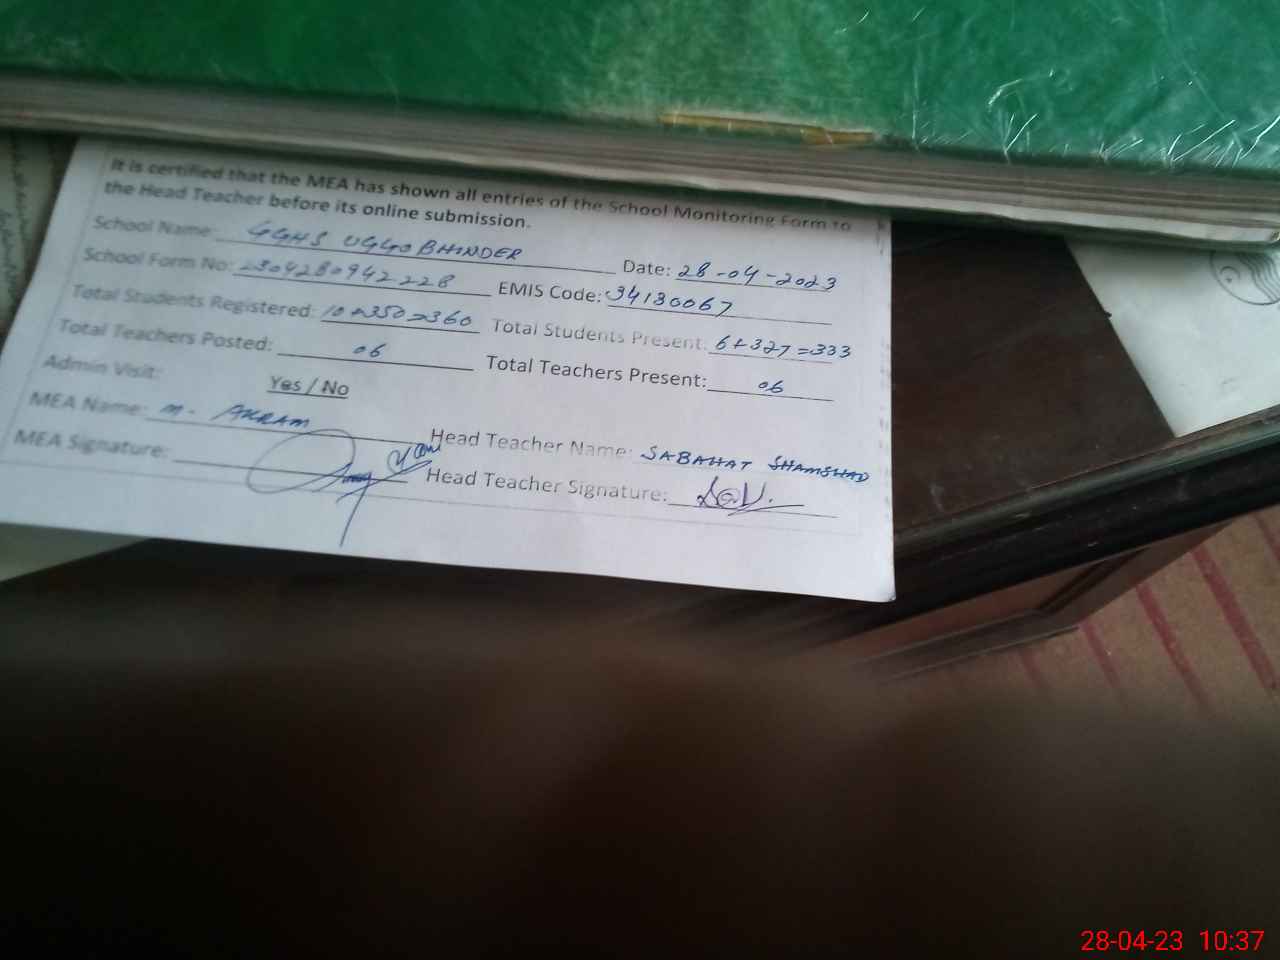 It is certified that the MEA has shown all entries of the School Monitoring Form to
the Head Teacher before its online submission.
School Name: GGHS UGGO BHINDER Date: 28-04-2023
School Form No: 2304280942228 EMIS Code: 34130067
Total Students Registered: 10+350=360 Total Students Present: 6+327=333
Total Teachers Posted: 06 Total Teachers Present: 06
Admin Visit: Yes / No
MEA Name: M. AKRAM Head Teacher Name: SABAHAT SHAMSHAD
MEA Signature: Head Teacher Signature:
28-04-23 10:37